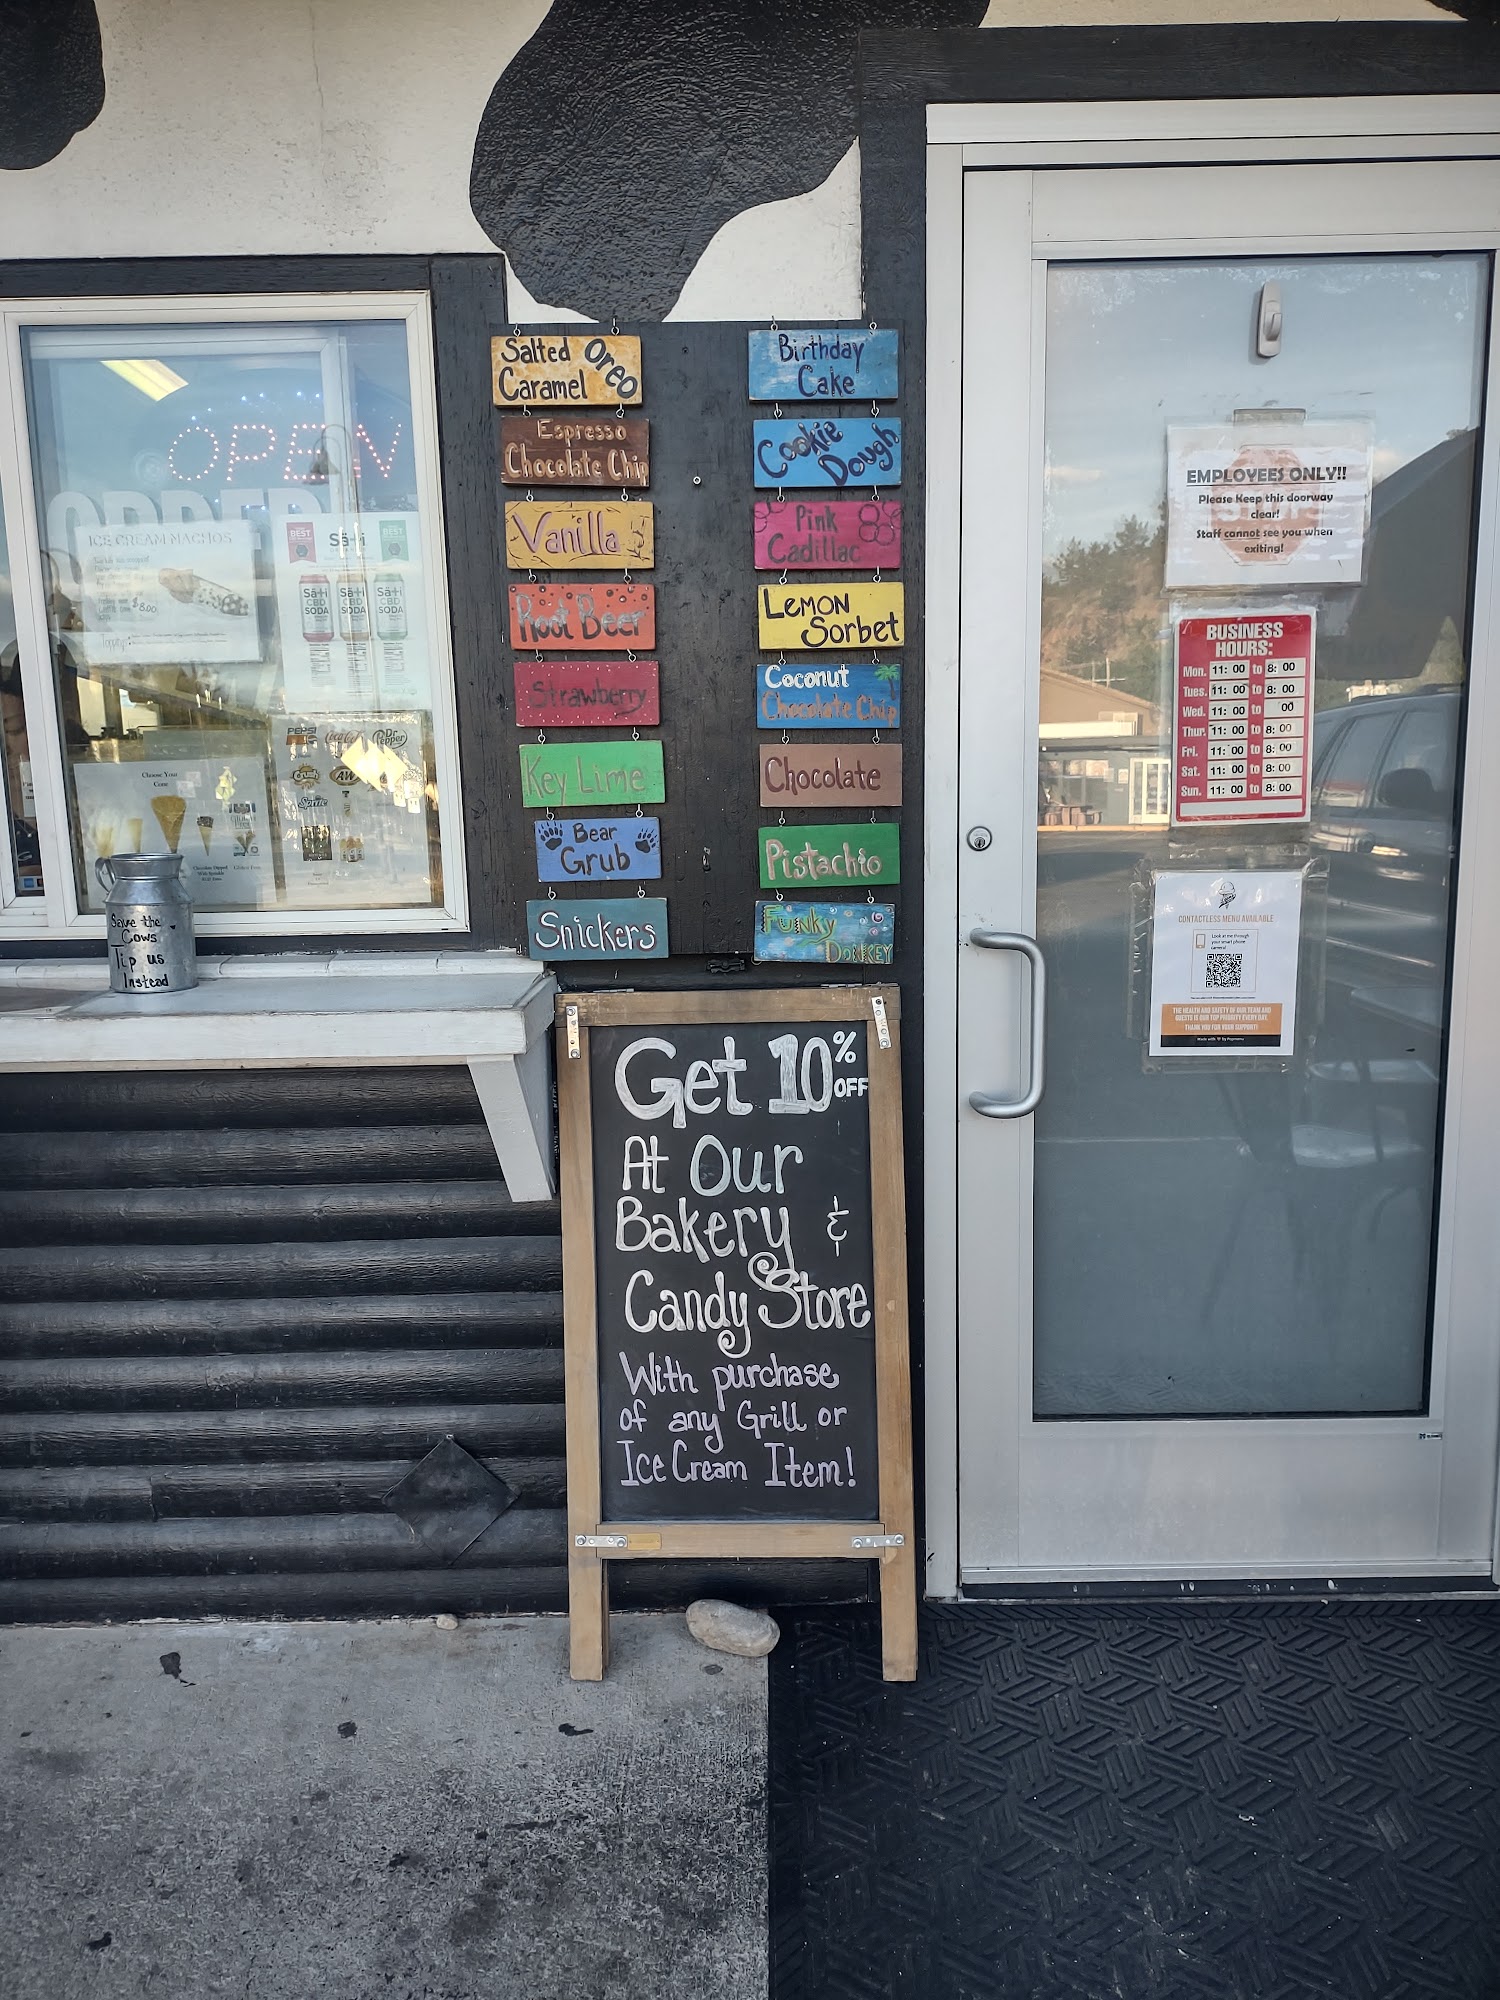 OPEN
ORDER
ICE CREAM NACHOS
$8.00
Toppings:
BEST
Sä+i
BEST
Sä+i
CBD
SODA
Sä+i
CBD
SODA
Sä+i
CBD
SODA
PEPSI
Coca-Cola
Dr Pepper
Crush
A&W
Sprite
Choose Your
Cone
Chocolate Dipped
With Sprinkle
Gluten Free
Save the
Cows
Tip us
Instead
Salted Oreo
Caramel
Espresso
Chocolate Chip
Vanilla
Root Beer
Strawberry
Key Lime
Bear
Grub
Snickers
Birthday
Cake
Cookie
Dough
Pink
Cadillac
Lemon
Sorbet
Coconut
Chocolate Chip
Chocolate
Pistachio
Funky
Donkey
Get 10% OFF
At Our
Bakery &
Candy Store
With purchase
of any Grill or
Ice Cream Item!
EMPLOYEES ONLY!!
Please Keep this doorway
clear!
Staff cannot see you when
exiting!
BUSINESS
HOURS:
Mon. 11:00 to 8:00
Tues. 11:00 to 8:00
Wed. 11:00 to 00
Thur. 11:00 to 8:00
Fri. 11:00 to 8:00
Sat. 11:00 to 8:00
Sun. 11:00 to 8:00
CONTACTLESS MENU AVAILABLE
Look at me through
your smart phone
camera!
THE HEALTH AND SAFETY OF OUR TEAM AND
GUESTS IS OUR TOP PRIORITY EVERY DAY.
THANK YOU FOR YOUR SUPPORT!
Made with ♥ by Popmenu